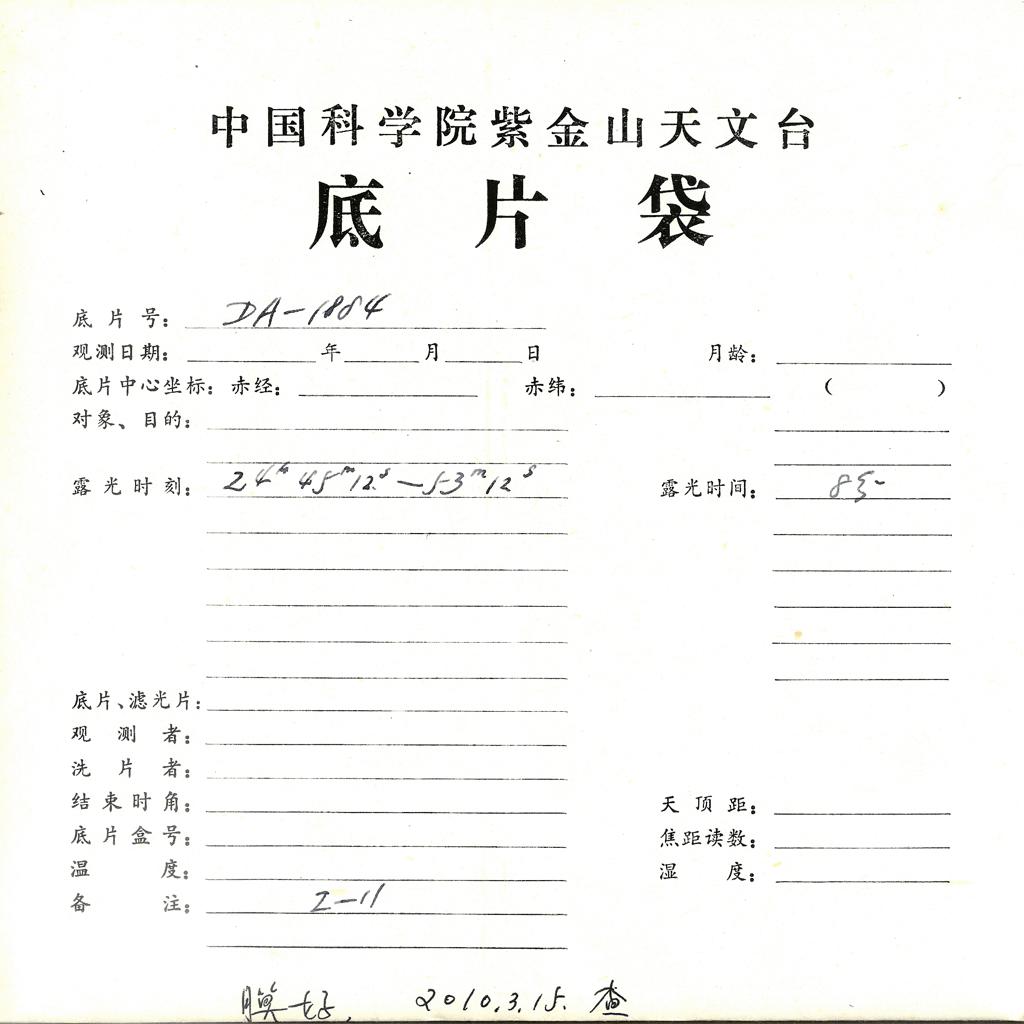 中国科学院紫金山天文台
底片袋
底片号: DA-1884
观测日期: 年 月 日 月龄:
底片中心坐标: 赤经: 赤纬: ( )
对象、目的:
露光时刻: 24h 45m12s—53m12s 露光时间: 8分
底片、滤光片:
观测者:
洗片者:
结束时角: 天顶距:
底片盒号: 焦距读数:
温度: 湿度:
备注: I-11
膜好. 2010.3.15. 查